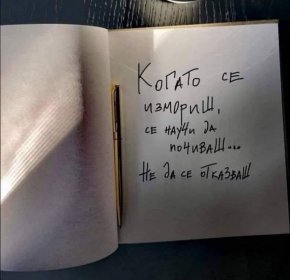 Когато се
измориш,
се научи да
почиваш...
Не да се отказваш